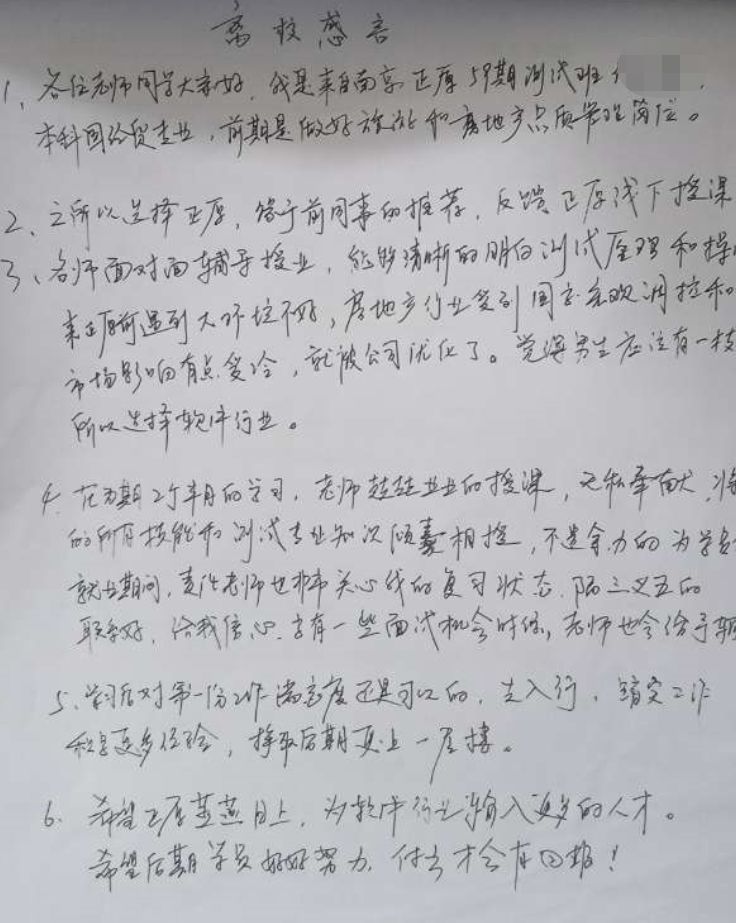 离校感言
1、各位老师同学大家好，我是来自南京正厚59期测试班
本科国经贸专业，前期是做好旅游和房地产品质管理岗位。
2、之所以选择正厚，缘于前同事的推荐，反馈正厚线下授课
3、名师面对面辅导授业，能够清晰的明白测试原理和操
来正厚前遇到大环境不好，房地产行业受到国家宏观调控和
市场影响有点受冷，就被公司优化了。觉得男生应该有一技
所以选择软件行业。
4、在为期2个半月的学习，老师兢兢业业的授课，无私奉献，将
的所有技能和测试专业知识倾囊相授，不遗余力的为学员
就业期间，责任老师也非常关心我的复习状态，隔三叉五的
联系好，给我信心，有一些面试机会时候，老师也会给予辅
5、学习后对第一份工作满意度还是可以的，先入行，踏实工作
积累更多经验，争取后期更上一层楼。
6、希望正厚蒸蒸日上，为软件行业输入更多的人才。
希望后期学员好好努力，付出才会有回报！